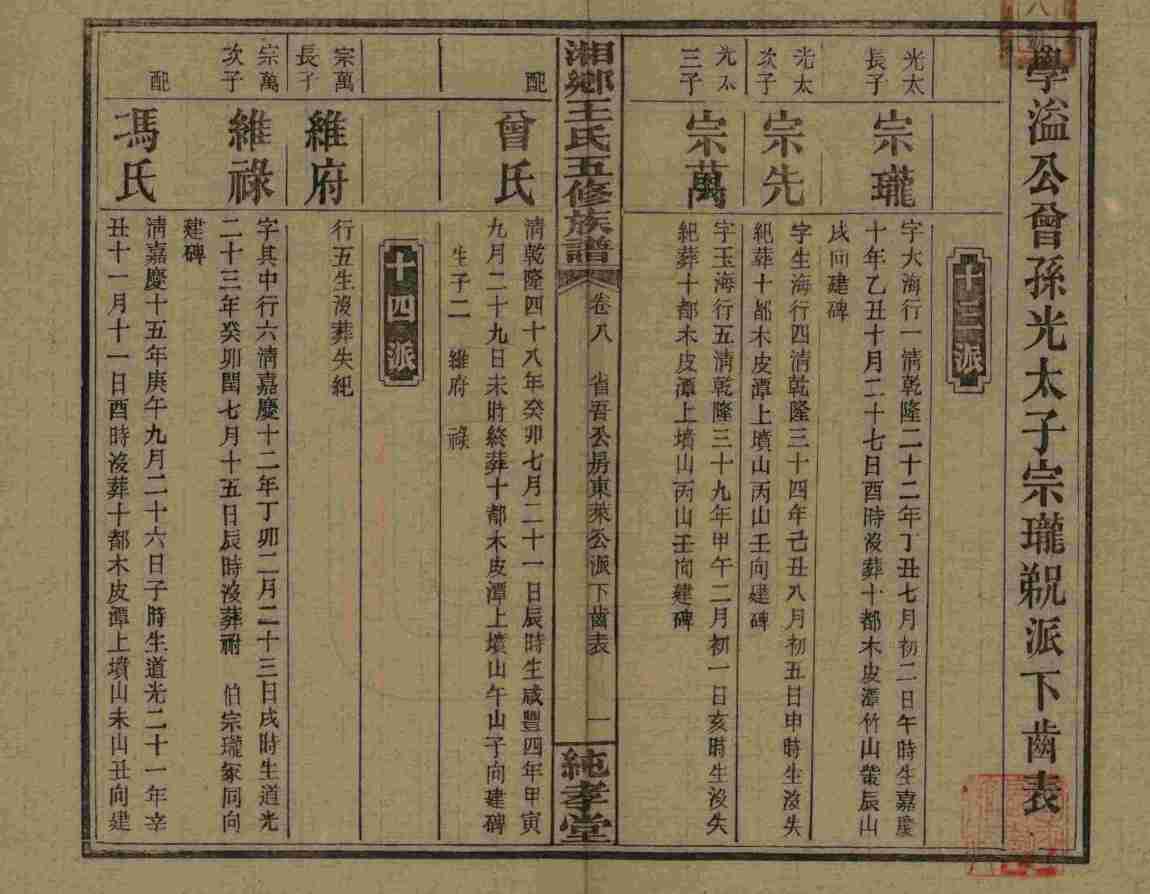 學溢公曾孫光太子宗瓏覡派下齒表
十三派
光太
長子
宗瓏
字大海行一清乾隆二十二年丁丑七月初二日午時生嘉慶
十年乙丑十月二十七日酉時沒葬十都木皮潭竹山塋辰山
戌向建碑
光太
次子
宗先
字生海行四清乾隆三十四年己丑八月初五日申時生沒失
紀葬十都木皮潭上墳山丙山壬向建碑
光太
三子
宗萬
字玉海行五清乾隆三十九年甲午二月初一日亥時生沒失
紀葬十都木皮潭上墳山丙山壬向建碑
湘鄉王氏五修族譜
卷八
省吾公房東萊公派下齒表
一
純孝堂
配
曾氏
清乾隆四十八年癸卯七月二十一日辰時生咸豐四年甲寅
九月二十九日未時終葬十都木皮潭上墳山午山子向建碑
生子二 維府 祿
十四派
宗萬
長子
維府
行五生沒葬失紀
宗萬
次子
維祿
字其中行六清嘉慶十二年丁卯二月二十三日戌時生道光
二十三年癸卯閏七月十五日辰時沒葬祔 伯宗瓏冢同向
建碑
配
馮氏
清嘉慶十五年庚午九月二十六日子時生道光二十一年辛
丑十一月十一日酉時沒葬十都木皮潭上墳山未山丑向建